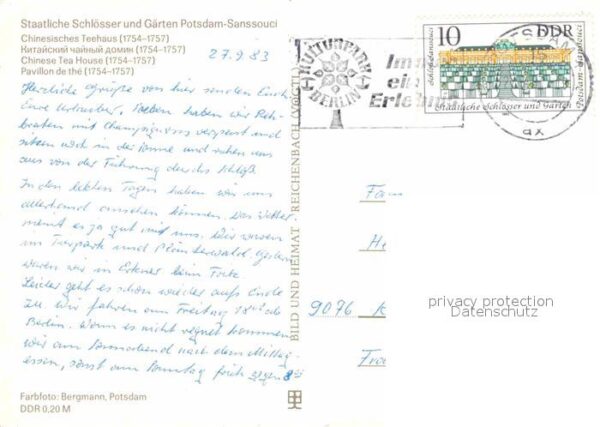 Staatliche Schlösser und Gärten Potsdam-Sanssouci
Chinesisches Teehaus (1754-1757)
Китайский чайный домин (1754-1757)
Chinese Tea House (1754-1757)
Pavillon de thé (1754-1757)
27.9.83
Herzliche Grüße von hier senden Euch
Eure Urlauber. Soeben haben wir Reh-
braten mit Champignons verspeist und
sitzen noch in der Sonne und ruhen uns
aus von der Führung durchs Schloß.
In den letzten Tagen haben wir uns
allerhand ansehen können. Das Wetter
meint es ja gut mit uns. Wir waren
im Tierpark und Plänterwald, gestern
waren wir in Erkner beim
Leider geht es schon wieder aufs Ende
zu. Wir fahren am Freitag ab
Berlin. Wenn es nicht regnet kommen
wir am Sonnabend nach dem Mittag-
essen, sonst am Sonntag früh gegen
Farbfoto: Bergmann, Potsdam
DDR 0,20 M
BILD UND HEIMAT · REICHENBACH (VOGTL)
KULTURPARK
BERLIN
Im
ein
Erlebnis
10 DDR
Schloß Sanssouci
Potsdam-Sanssouci
Staatliche Schlösser und Gärten
ax
Fam
He
9076 K
Fra
privacy protection
Datenschutz